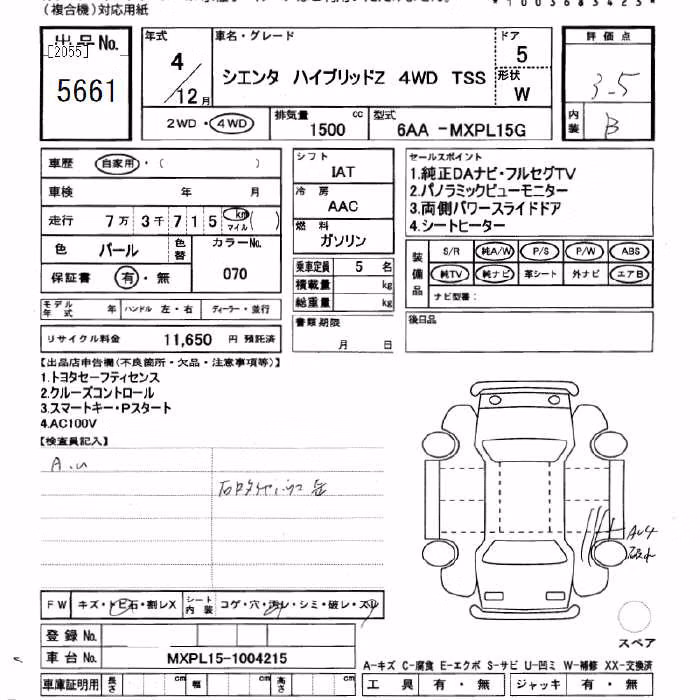 (複合機)対応用紙
*1003683423*
出品No.
[2055]
5661
年式
4/12月
車名・グレード
シエンタ ハイブリッドZ 4WD TSS
ドア
5
形状
W
評価点
3.5
内装
B
2WD・4WD
排気量
1500 cc
型式
6AA -MXPL15G
車歴 自家用・( )
車検 年 月
走行 7万 3千 7 1 5 km マイル( )
色 パール 色替
カラーNo.
070
保証書 有・無
シフト
IAT
冷房
AAC
燃料
ガソリン
乗車定員 5 名
積載量 kg
総重量 kg
書類期限
月 日
セールスポイント
1.純正DAナビ・フルセグTV
2.パノラミックビューモニター
3.両側パワースライドドア
4.シートヒーター
装備品
S/R 純A/W P/S P/W ABS
純TV 純ナビ 革シート 外ナビ エアB
ナビ型番:
後日品
モデル年式 年 ハンドル 左・右 ディーラー・並行
リサイクル料金 11,650 円 預託済
【出品店申告欄(不良箇所・欠品・注意事項等)】
1.トヨタセーフティセンス
2.クルーズコントロール
3.スマートキー・Pスタート
4.AC100V
【検査員記入】
A.u
FW キズ・トビ石・割レX
シート内装 コゲ・穴・汚レ・シミ・破レ・スレ
登録No.
車台No. MXPL15-1004215
車庫証明用 長さ cm 幅 cm 高さ cm
スペア
A-キズ C-腐食 E-エクボ S-サビ U-凹ミ W-補修 XX-交換済
工具 有・無 ジャッキ 有・無